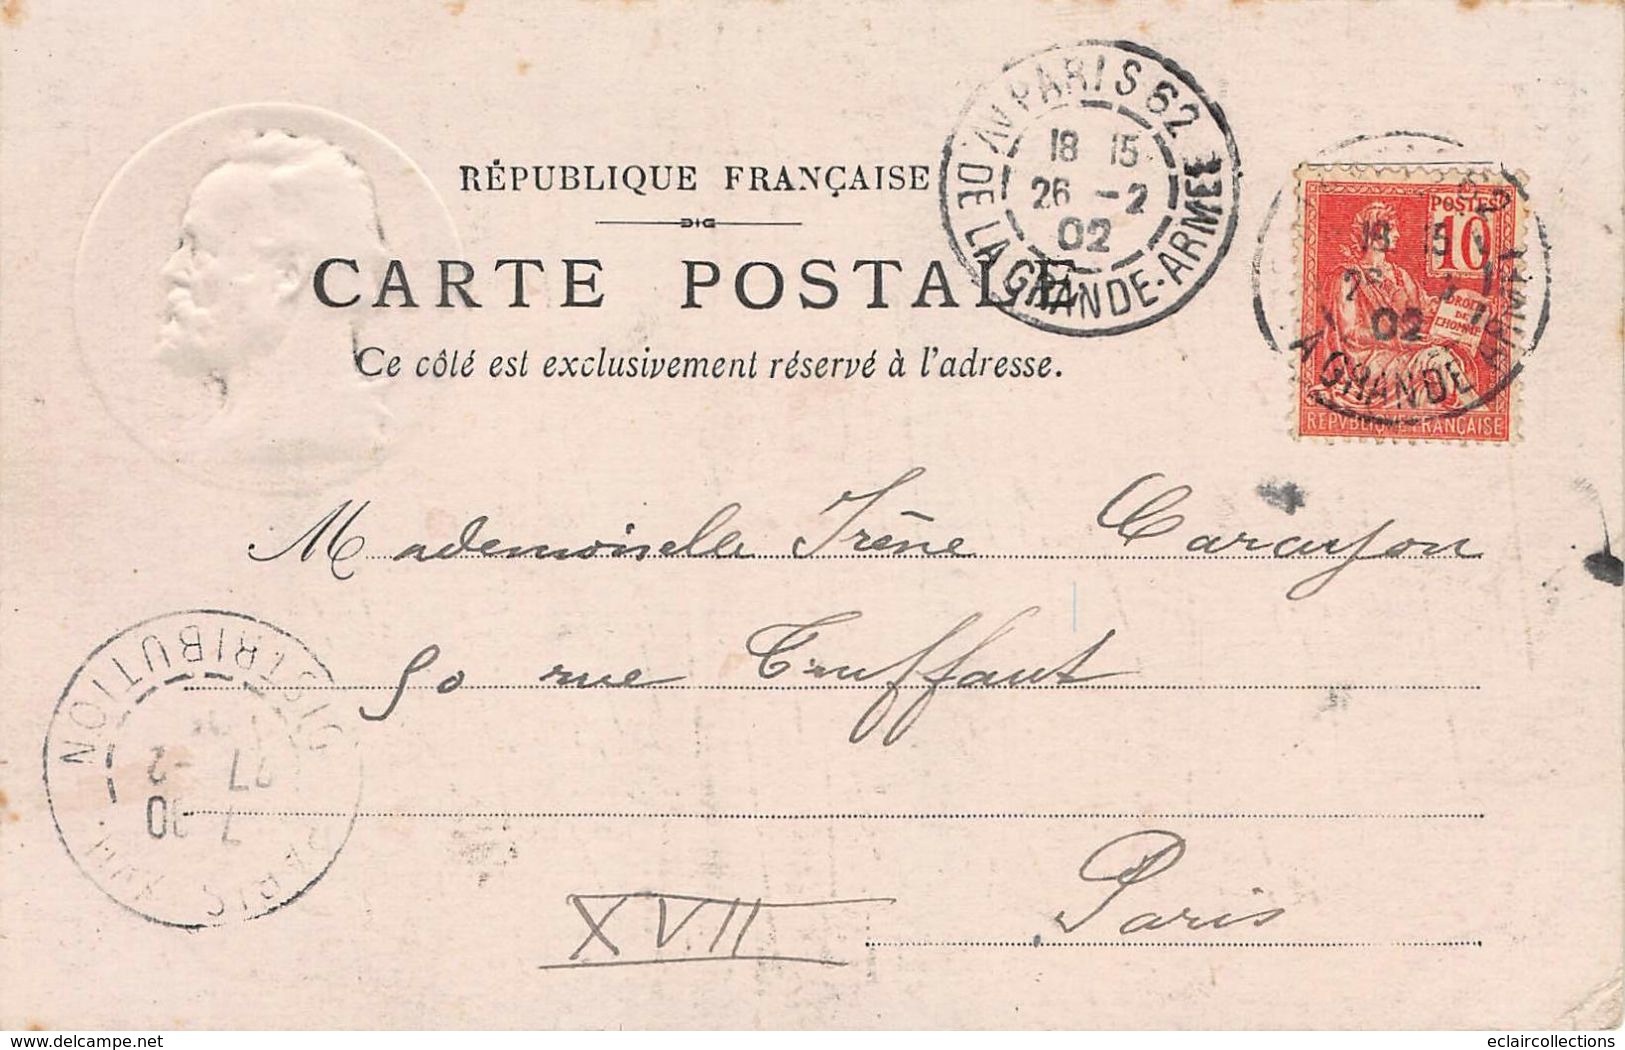 RÉPUBLIQUE FRANÇAISE
DIG
CARTE POSTALE
Ce côté est exclusivement réservé à l'adresse.
PARIS 62
AV. DE LA GRANDE-ARMEE
18 15
26 -2
02
POSTES
10
DROITS
DE
L'HOMME
REPVBLIQVE FRANÇAISE
18 15
02
A GRANDE ARMEE
Mademoiselle Irène
50 rue Truffaut
Paris
XVII
PARIS XVII
DISTRIBUTION
7 00
27 -2
www.delcampe.net
eclaircollections